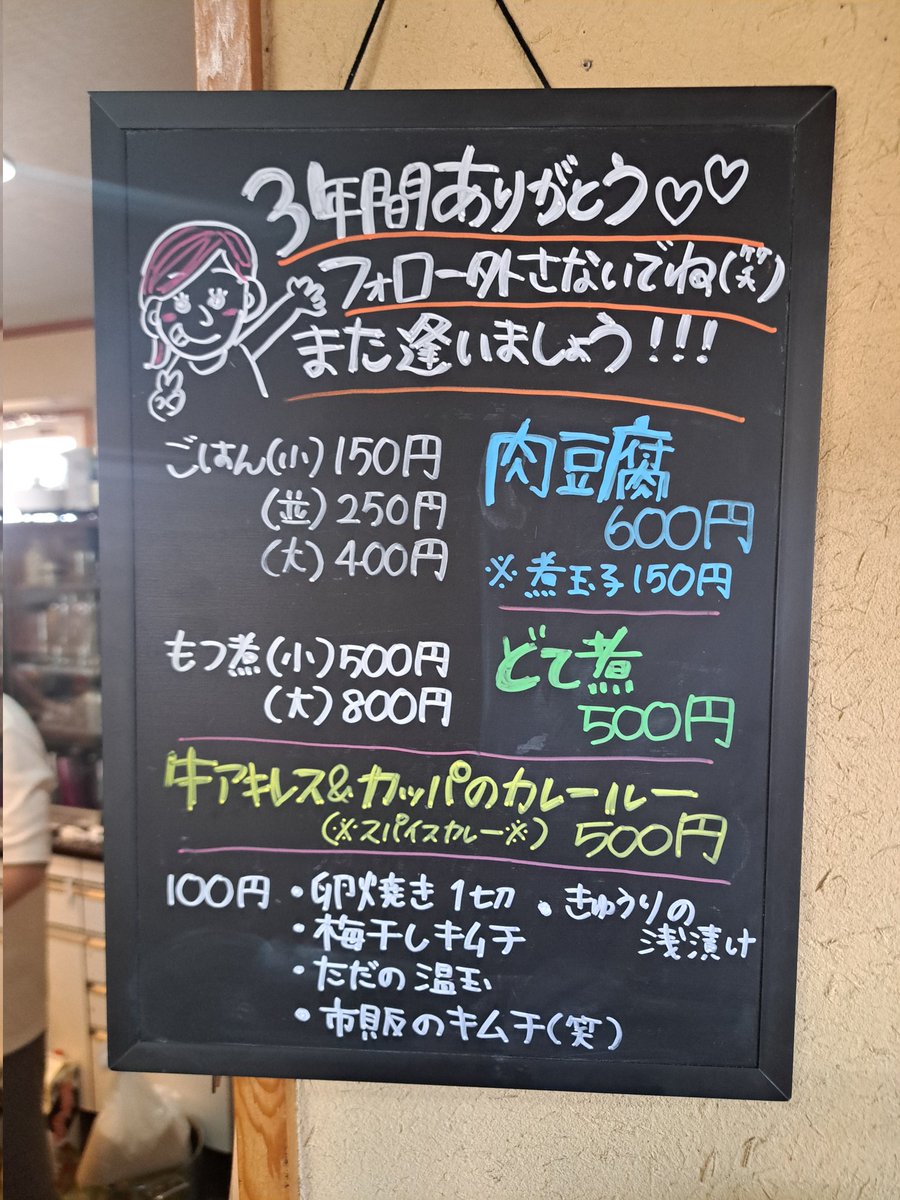 3年間ありがとう♡♡
フォロー外さないでね(笑)
また逢いましょう!!!
ごはん(小)150円
(並)250円
(大)400円
肉豆腐
600円
※煮玉子150円
もつ煮(小)500円
(大)800円
どて煮
500円
牛アキレス&カッパのカレールー
(※スパイスカレー※) 500円
100円・卵焼き1切
・梅干しキムチ
・ただの温玉
・市販のキムチ(笑)
・きゅうりの
浅漬け